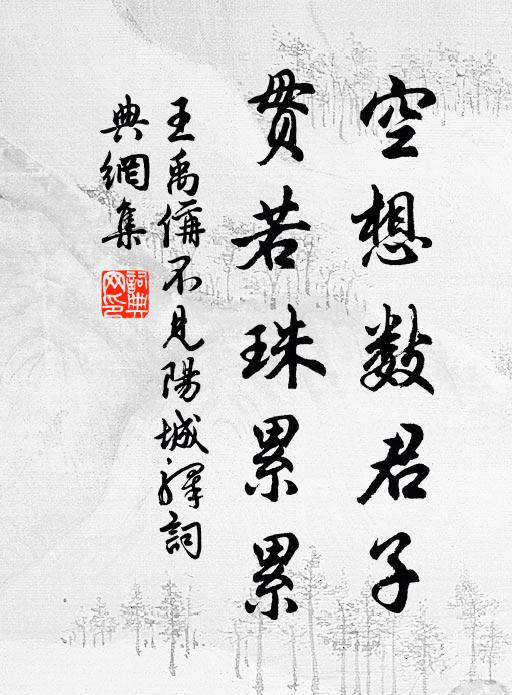 空想数君子
贯若珠累累
王禹偁不見陽城驛詞
典網集
詞典网印